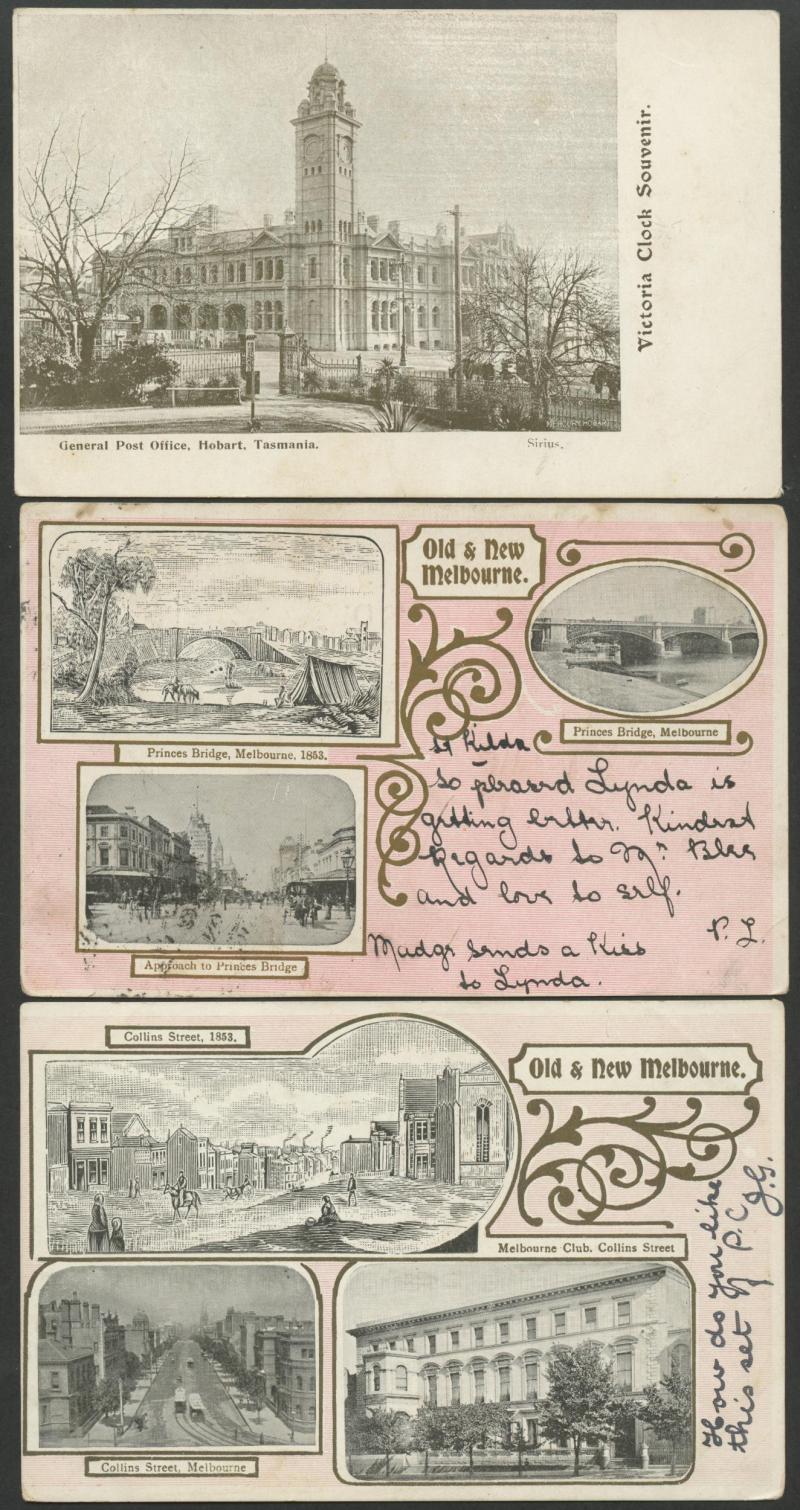 Victoria Clock Souvenir.
MERCURY, HOBART
General Post Office, Hobart, Tasmania.
Sirius.
Old & New
Melbourne.
Princes Bridge, Melbourne, 1853.
Princes Bridge, Melbourne
Approach to Princes Bridge
St Kilda
So pleased Lynda is
getting better. Kindest
Regards to Mr
and love to self.
P. L.
Madge sends a Kiss
to Lynda.
Collins Street, 1853.
Old & New Melbourne.
Melbourne Club, Collins Street
Collins Street, Melbourne
How do you like
this set of P.C
J.G.